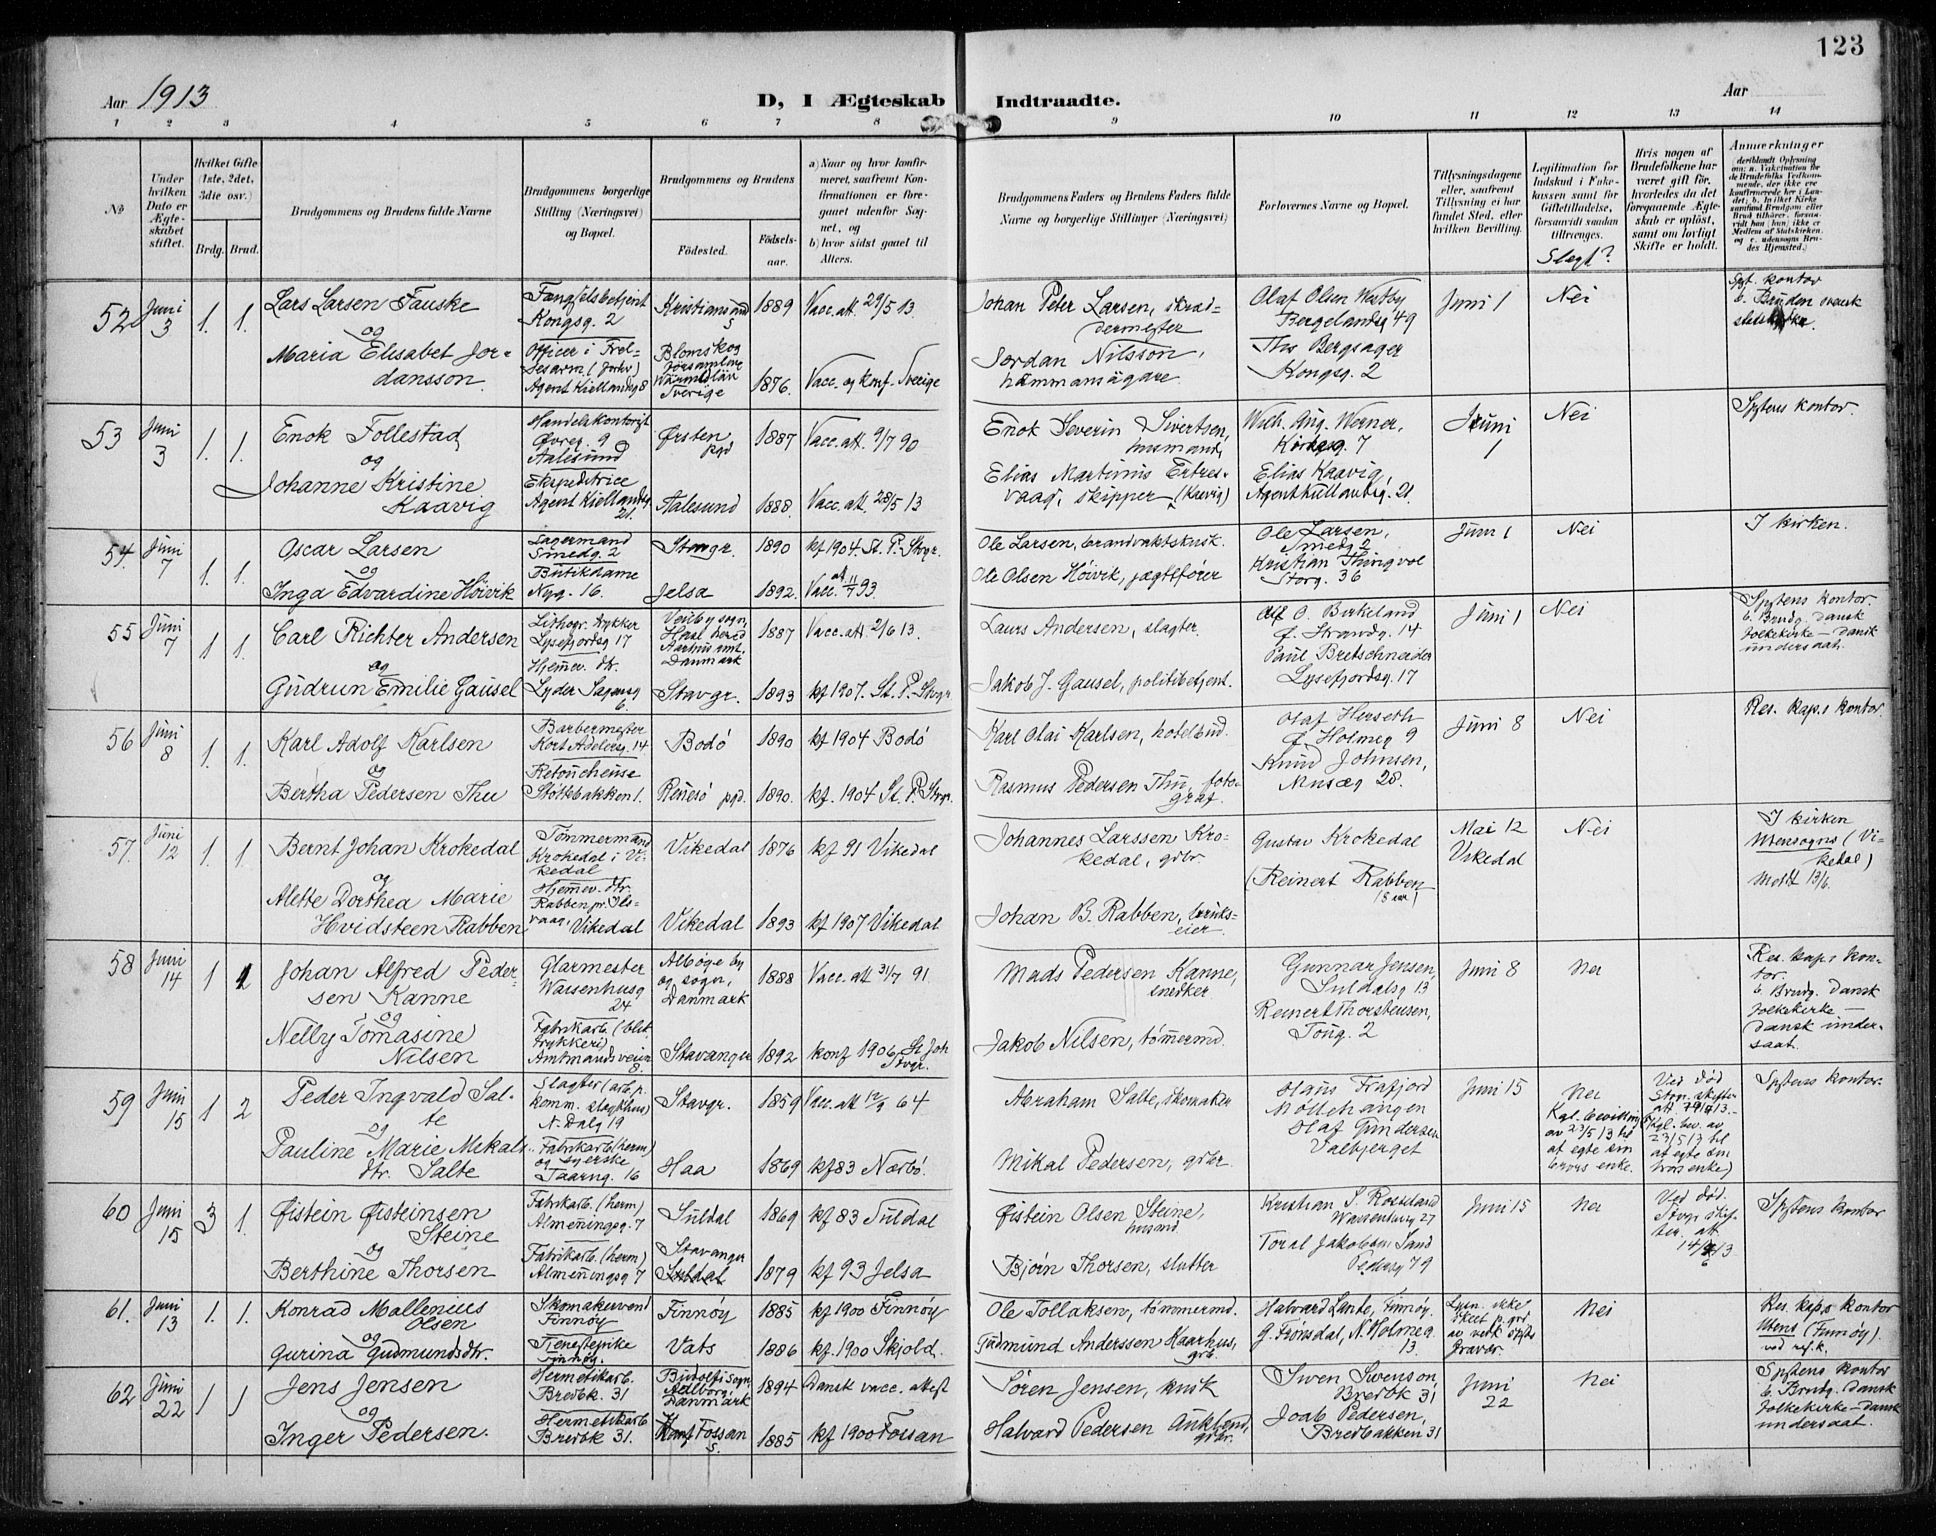 123
Aar 1913
D, I Ægteskab Indtraadte.
Aar
1 2 3 4 5 6 7 8 9 10 11 12 13 14
No
Under hvilken Dato er Ægteskabet stiftet.
Hvilket Gifte (1ste, 2det, 3die osv.)
Brdg. Brud.
Brudgommens og Brudens fulde Navne
Brudgommens borgerlige Stilling (Næringsvei) og Bopæl.
Brudgommens og Brudens
Fødested.
Fødselsaar.
a) Naar og hvor konfirmeret, saafremt Konfirmationen er foregaaet udenfor Sognet, og
b) hvor sidst gaaet til Alters.
Brudgommens Faders og Brudens Faders fulde Navne og borgerlige Stillinger (Næringsvei)
Forlovernes Navne og Bopæl.
Tillysningsdagene eller, saafremt Tillysning ei har fundet Sted, efter hvilken Bevilling.
Legitimation for Indskud i Enkekassen samt for Giftetilladelse, forsaavidt saadan tiltrænges.
Slægt?
Hvis nogen af Brudefolkene har været gift før, hvorledes da det foregaaende Ægteskab er opløst, samt om lovligt Skifte er holdt.
Anmerkninger
52 Juni 3 1. 1.
Lars Larsen Fauske
og
Maria Elisabet Jordansson
Fængselsbetjent
Kongsg. 2
Officer i Frelsesarm. (forhv)
Agent Kiellandsg 8
Kristianssund S
Blomskog församling
Wärmlän
Sverige
1889
1876
Vacc. att. 29/5 13
Vacc. og konf. Sverige
Johan Peter Larsen, skræddermester
Jordan Nilsson, hemmansägare
Olaf Olsen Westby
Bergelandsg 49
Ths Bergsager
Kongsg. 2
Juni 1
Nei
Spt. kontor
b. Bruden svensk statskirke.
53 Juni 3 1. 1.
Enok Follestad
og
Johanne Kristine Kaavig
Handelskontorist
Øvreg. 9
Aalesund
Ekspeditrice
Agent Kiellandsg 21.
Ørsten pgd
Aalesund
1887
1888.
Vacc. att. 9/7 90
Vacc. att. 28/5 13
Enok Severin Sivertsen, husmand,
Elias Martinus Ertresvaag, skipper (Kaavig)
Wilh. Aug. Werner,
Kirkeg. 7
Elias Kaavig,
Agent Kiellandsg. 21.
Juni 1
Nei
Spstens kontor.
54. Juni 7 1. 1.
Oscar Larsen
og
Inga Edvardine Høivik
Lagermand
Smedg. 2
Butikdame
Nyg. 16.
Stavgr.
Jelsa
1890
1892.
kf 1904. St. P. Stvgr.
Vacc. att 11/7 93.
Ole Larsen, brandvaktskusk.
Ole Olsen Høivik, jægtefører
Ole Larsen,
Smedg 2
Kristian Thingvol
Storg. 36
Juni 1
Nei
I kirken.
55 Juni 7 1 1.
Carl Richter Andersen
og
Gudrun Emilie Gausel
Lithogr. trykker
Lysefjordsg 17
Hjemev. dtr.
Lyder Sagensg 6.
Veilby sogn,
Hasl herred
Aarhus amt.
Danmark
Stavgr.
1887
1893
Vacc. att. 2/6 13.
kf 1907. St. P. Stvgr
Laurs Andersen, slagter.
Jakob J. Gausel, politibetjent.
Alf O. Birkeland
Ø. Strandg. 14
Paul Bretschneider
Lysefjordsg. 17
Juni 1
Nei
Spstens kontor.
b. Brudg. Dansk folkekirke — dansk undersaat.
56 Juni 8 1. 1.
Karl Adolf Karlsen
og
Bertha Pedersen Thu
Barbermester
Kort Adelersg. 14
Retoucheuse
Støttebakken 1.
Bodø
Rennesø pgd.
1890
1890.
kf 1904 Bodø
kf. 1904 St. P. Stvgr.
Karl Olai Karlsen, hotelbud.
Rasmus Pedersen Thu, fotograf.
Olaf Herseth
Ø. Holmeg 9
Knud Johnsen,
Musæg 28.
Juni 8
Nei
Res. kap.s kontor
57. Juni 12 1. 1.
Bernt Johan Krokedal
og
Alette Dorthea Marie Hvidsteen Rabben
Tømmermand
Krokedal i Vikedal
Hjemev. dtr.
Rabben pr. Ilsvaag, Vikedal
Vikedal
Vikedal
1876
1893
kf 91 Vikedal
kf 1907 Vikedal
Johannes Larssen Krokedal, gbr.
Johan B. Rabben, brukseier.
Gustav Krokedal
(Reinert Rabben
Mai 12
Vikedal
Nei
I kirken
Utensogns (Vikedal)
13/6.
58 Juni 14 1 1
Johan Alfred Pedersen Kanne
og
Nelly Tomasine Nilsen
Glarmester
Waisenhusg 24
Fabrikarb. (blektrykkeri)
Amtmandsveien 8.
Albøge by og sogn,
Danmark
Stavanger
1888
1892
Vacc. att 31/7 91
konf 1906, St Joh Stvgr.
Mads Pedersen Kanne, snedker
Jakob Nilsen, tømmermd.
Gunnar Jensen,
Suldalsg 13
Reinert Thorsteinsen,
Toug. 2
Juni 8
Nei
Res. kap.s kontor.
b. Brudg. Dansk folkekirke — dansk undersaat.
59 Juni 15 1 2
Peder Ingvald Salte
og
Pauline Marie Mikalsdtr. Salte
Slagter (arb. p. komm. slagthus)
N. Dalg 19
Fabrikarb. (herm) og syerske
Taarng. 16
Stavgr.
Haa
1859
1869
Vacc. att 12/9 64
kf 83 Nærbø.
Abraham Salte, skomaker
Mikal Pedersen, gbr.
Hans Frafjord
Møllehaugen
Olaf Gundersen
Valbjerget
Juni 15
Nei
Kgl. bevilling av 23/5 13 til at egte sin brors enke.
Ved død
Stvgr. skifteratt.
Kgl. bev. av 23/5 13 til at egte sin brors enke)
Spstens kontor.
60 Juni 15 3 1.
Øistein Øisteinsen Steine
og
Berthine Thorsen
Fabrikarb. (herm)
Almenningsg. 7
Fabrikarb. (herm)
Almenningsg 7
Suldal
Stavanger
Suldal
1869
1879
kf 83 Suldal
kf 93 Jelsa
Øistein Olsen Steine, husmd.
Bjørn Thorsen, slutter
Kristian S. Rossland
Waisenhusg 27
Toral Jakobsen Sand
Pedersg 79
Juni 15
Nei
Ved død.
Stvgr skifter. att.
Spstens kontor
61. Juni 13 1. 1.
Konrad Mallenius Olsen
og
Gurina Gudmundsdtr.
Skomakersvend
Finnøy
Tjenestepike
Finnøy.
Finnøy
Vats
1885
1886
kf 1900 Finnøy
kf. 1900 Skjold.
Ole Tollaksen, tømmermd.
Gudmund Anderssen Haarhus, gbr.
Halvard Lante, Finnøy.
G. Frønsdal, N. Holmeg. 13
Lysn. ikke skeet p. gr. av
Nei
Res. kap.s kontor
Utens (Finnøy).
62 Juni 22 1 1
Jens Jensen
og
Inger Pedersen.
Hermetikarb.
Bredbk 31
Hermetikarb
Bredbk 31.
Budolfi Sogn,
Aalborg,
Danmark
Fossan
1894
1885
Dansk vacc. attest
kf 1900 Fossan
Søren Jensen, kusk
Halvard Pedersen Aukland, gbr.
Swen Swenson
Bredbk 31
Joab Pedersen,
Bredbakken 31
Juni 22
Nei
Spstens kontor
b. Brudg. Dansk folkekirke — dansk undersaat.